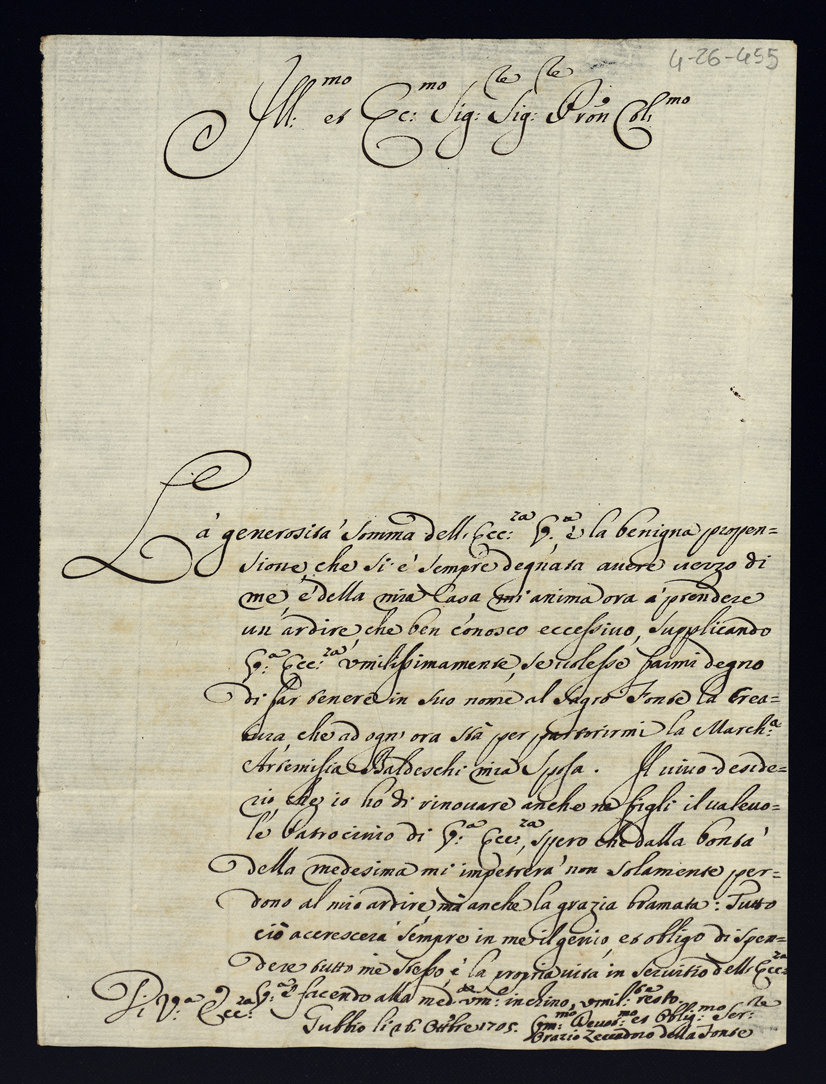 4-26-455
Ill:mo et Ecc:mo Sig:re Sig:re Pron Col:mo
La generosità somma dell'Ecc:za V:a è la benigna propen=
sione che si è sempre degnata avere verzo di
me, è della mia Casa mi anima ora à prendere
un'ardire, che ben conosco eccessivo, supplicando
V:a Ecc:za umilissimamente, se volesse farmi degno
di far tenere in suo nome al Sagro Fonte la Crea=
tura che ad ogn'ora stà per partorirmi la March:a
Artemisia Baldeschi mia Sposa. Il vivo deside=
rio che io ho di rinovare anche ne figli il valevo=
le patrocinio di V:a Ecc:za, spero che dalla bontà
della medesima mi impetrerà non solamente per=
dono al mio ardire, mà anche la grazia bramata: Tutto
ciò accrescerà sempre in me il genio, et obligo di spen=
dere tutto me stesso è la propria vita in servitio dell'Ecc:za
V:a è facendo alla med:ma um:o inchino, umil:te resto
Di V:a Ecc:za
Gubbio li 26. Ottbre 1705.
Um:mo Devot:mo et Oblig:mo Ser:re
della Fonte